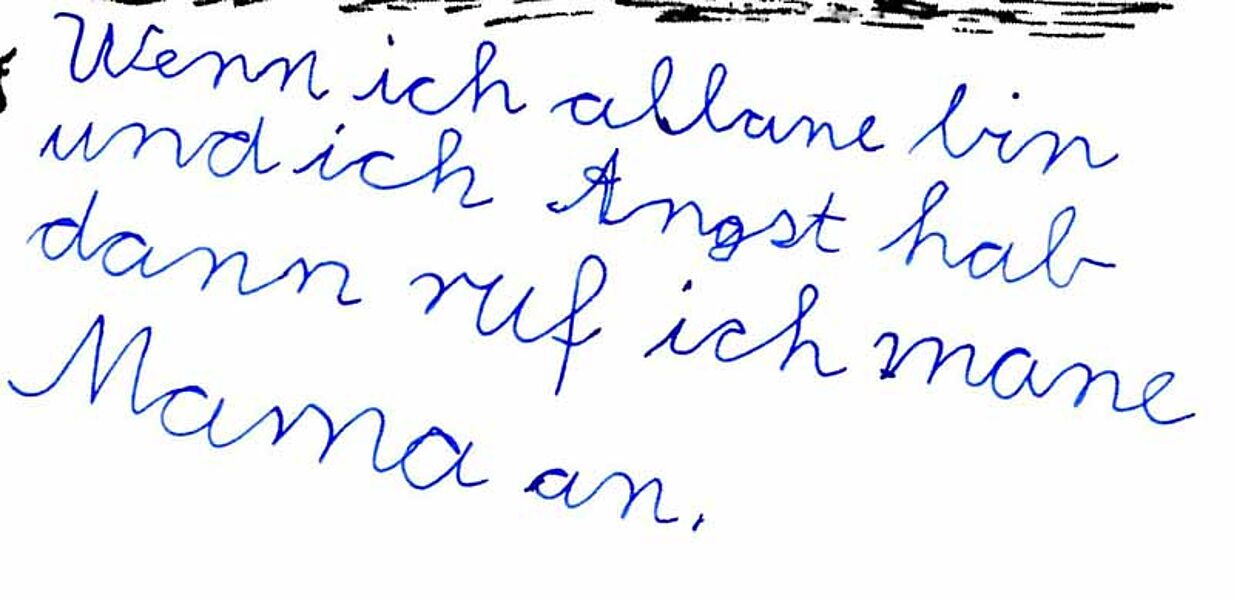 Wenn ich allane bin
und ich Angst hab
dann ruf ich mane
Mama an.